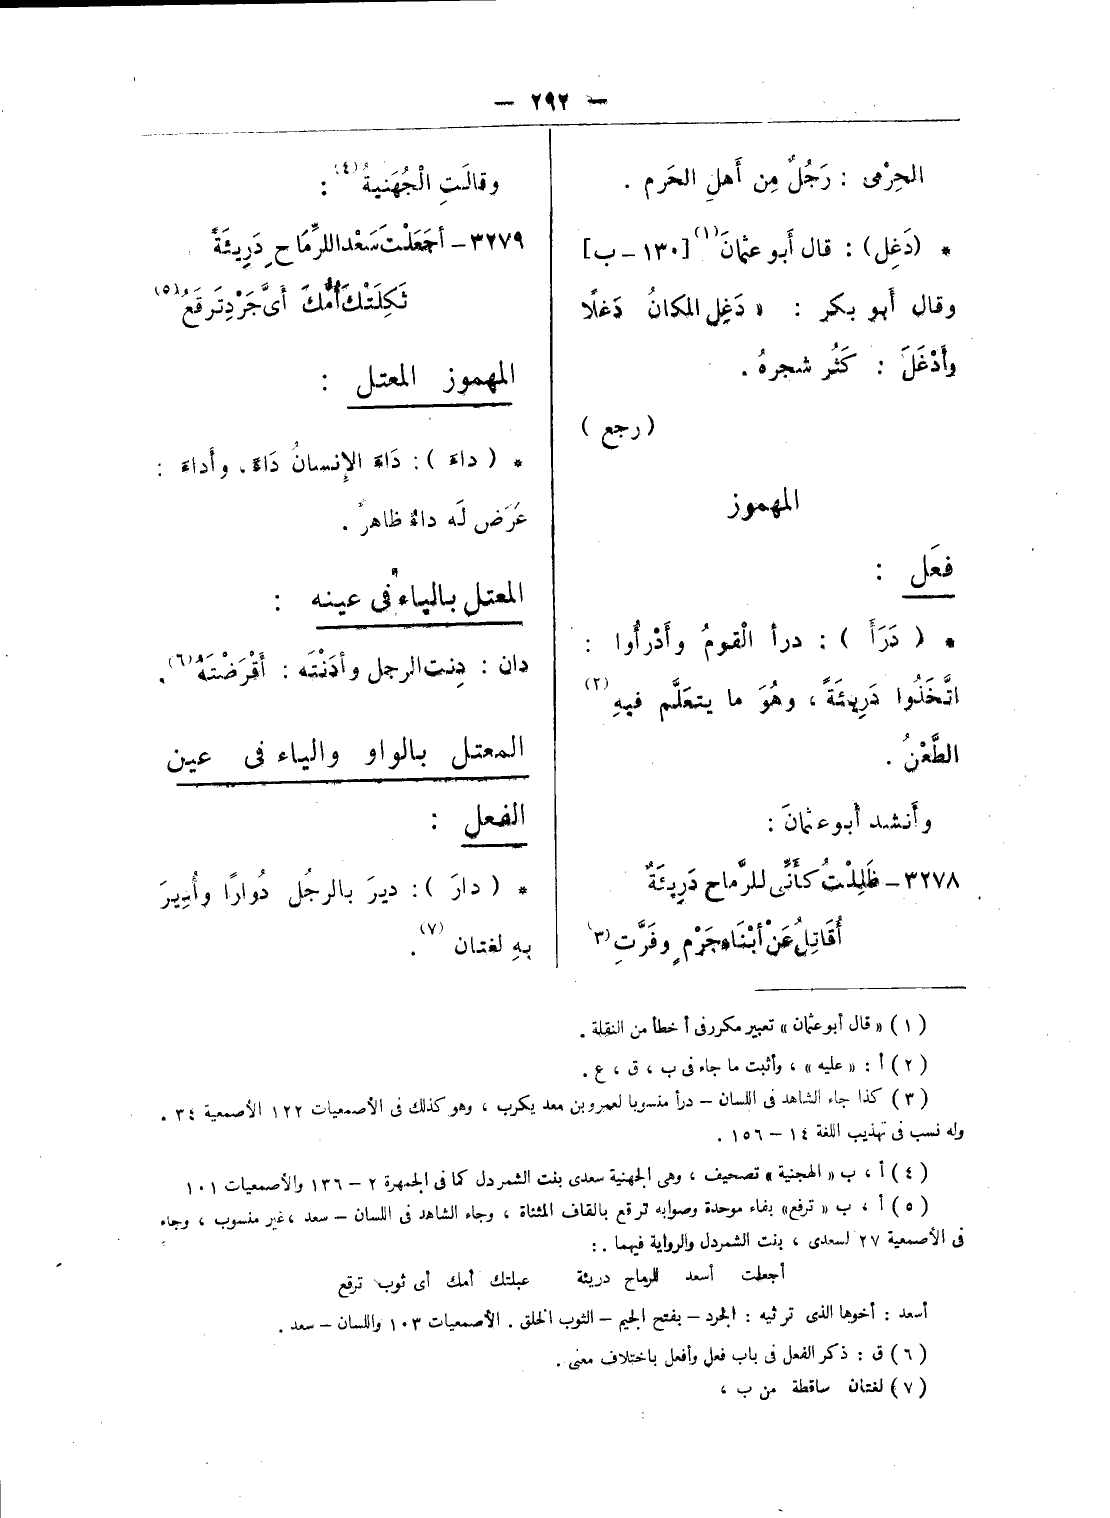 — ٢٩٢ —
الحِرْمى : رَجُلٌ مِن أَهلِ الحَرم .
* (دَغِل) : قال أَبو عثمانَ (١) [١٣٠ – ب]
وقال أَبو بكر : « دَغِل المكانُ دَغلًا
وأَدْغَلَ : كَثُر شجرهُ .
( رجع )
المهموز
فعَل :
* ( دَرَأَ ) : درأ الْقومُ وأَدْرأُوا :
اتَّخَذُوا دَرِيئَةً ، وهُوَ ما يتعَلَّم فيهِ (٢)
الطَّعْنُ .
وأَنشد أبو عثمانَ :
٣٢٧٨ – ظَلِلْتُ كأَنِّى للرِّماح دَرِيئَةٌ
أُقَاتِلُ عَنْ أبْنَاء جَرْمٍ وفَرَّتِ (٣)
وقالَتِ الْجُهَنيةُ (٤) :
٣٢٧٩ – أجَعَلْتَ سَعْد اللرِّمَاحِ دَرِيئَةً
ثَكِلَتْكَ أُمُّكَ أَىَّ جَرْدٍ تَرقَعُ (٥)
المهموز المعتل :
* ( داءَ ) : دَاءَ الإِنسانُ دَاءً ، وأَداءَ :
عَرَض لَه داءٌ ظاهرٌ .
المعتل بالياء فى عينه :
دان : دِنت الرجل وأدَنْتَه : أَقْرَضْتَهُ (٦) .
المعتل بالواو والياء فى عين
الفعل :
* ( دارَ ) : ديرَ بالرجُل دُوارًا وأُدِيرَ
بهِ لغتان (٧) .
( ١ ) « قال أبو عثمان » تعبير مكرر فى أ خطأ من النقلة .
( ٢ ) أ : « عليه » ، وأثبت ما جاء فى ب ، ق ، ع .
( ٣ ) كذا جاء الشاهد فى اللسان – درأ منسوبا لعمرو بن معد يكرب ، وهو كذلك فى الأصمعيات ١٢٢ الأصمعية ٣٤ .
وله نسب فى تهذيب اللغة ١٤ – ١٥٦ .
( ٤ ) أ ، ب « الهجنية » تصحيف ، وهى الجهنية سعدى بنت الشمردل كما فى الجمهرة ٢ – ١٣٦ والأصمعيات ١٠١
( ٥ ) أ ، ب « ترفع » بفاء موحدة وصوابه ترقع بالقاف المثناة ، وجاء الشاهد فى اللسان – سعد ، غير منسوب ، وجاء
فى الأصمعية ٢٧ لسعدى ، بنت الشمردل والرواية فيهما . :
أجعلت أسعد للرماح دريئة عبلتك أمك أى ثوب ترقع
أسعد : أخوها الذى ترثيه : الجرد – بفتح الجيم – الثوب الخلق . الأصمعيات ١٠٣ واللسان – سعد .
( ٦ ) ق : ذكر الفعل فى باب فعل وأفعل باختلاف معنى .
( ٧ ) لغتان ساقطة من ب ،